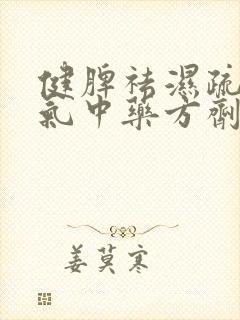 健脾祛濕疏
氣中藥方劑
姜莫寒